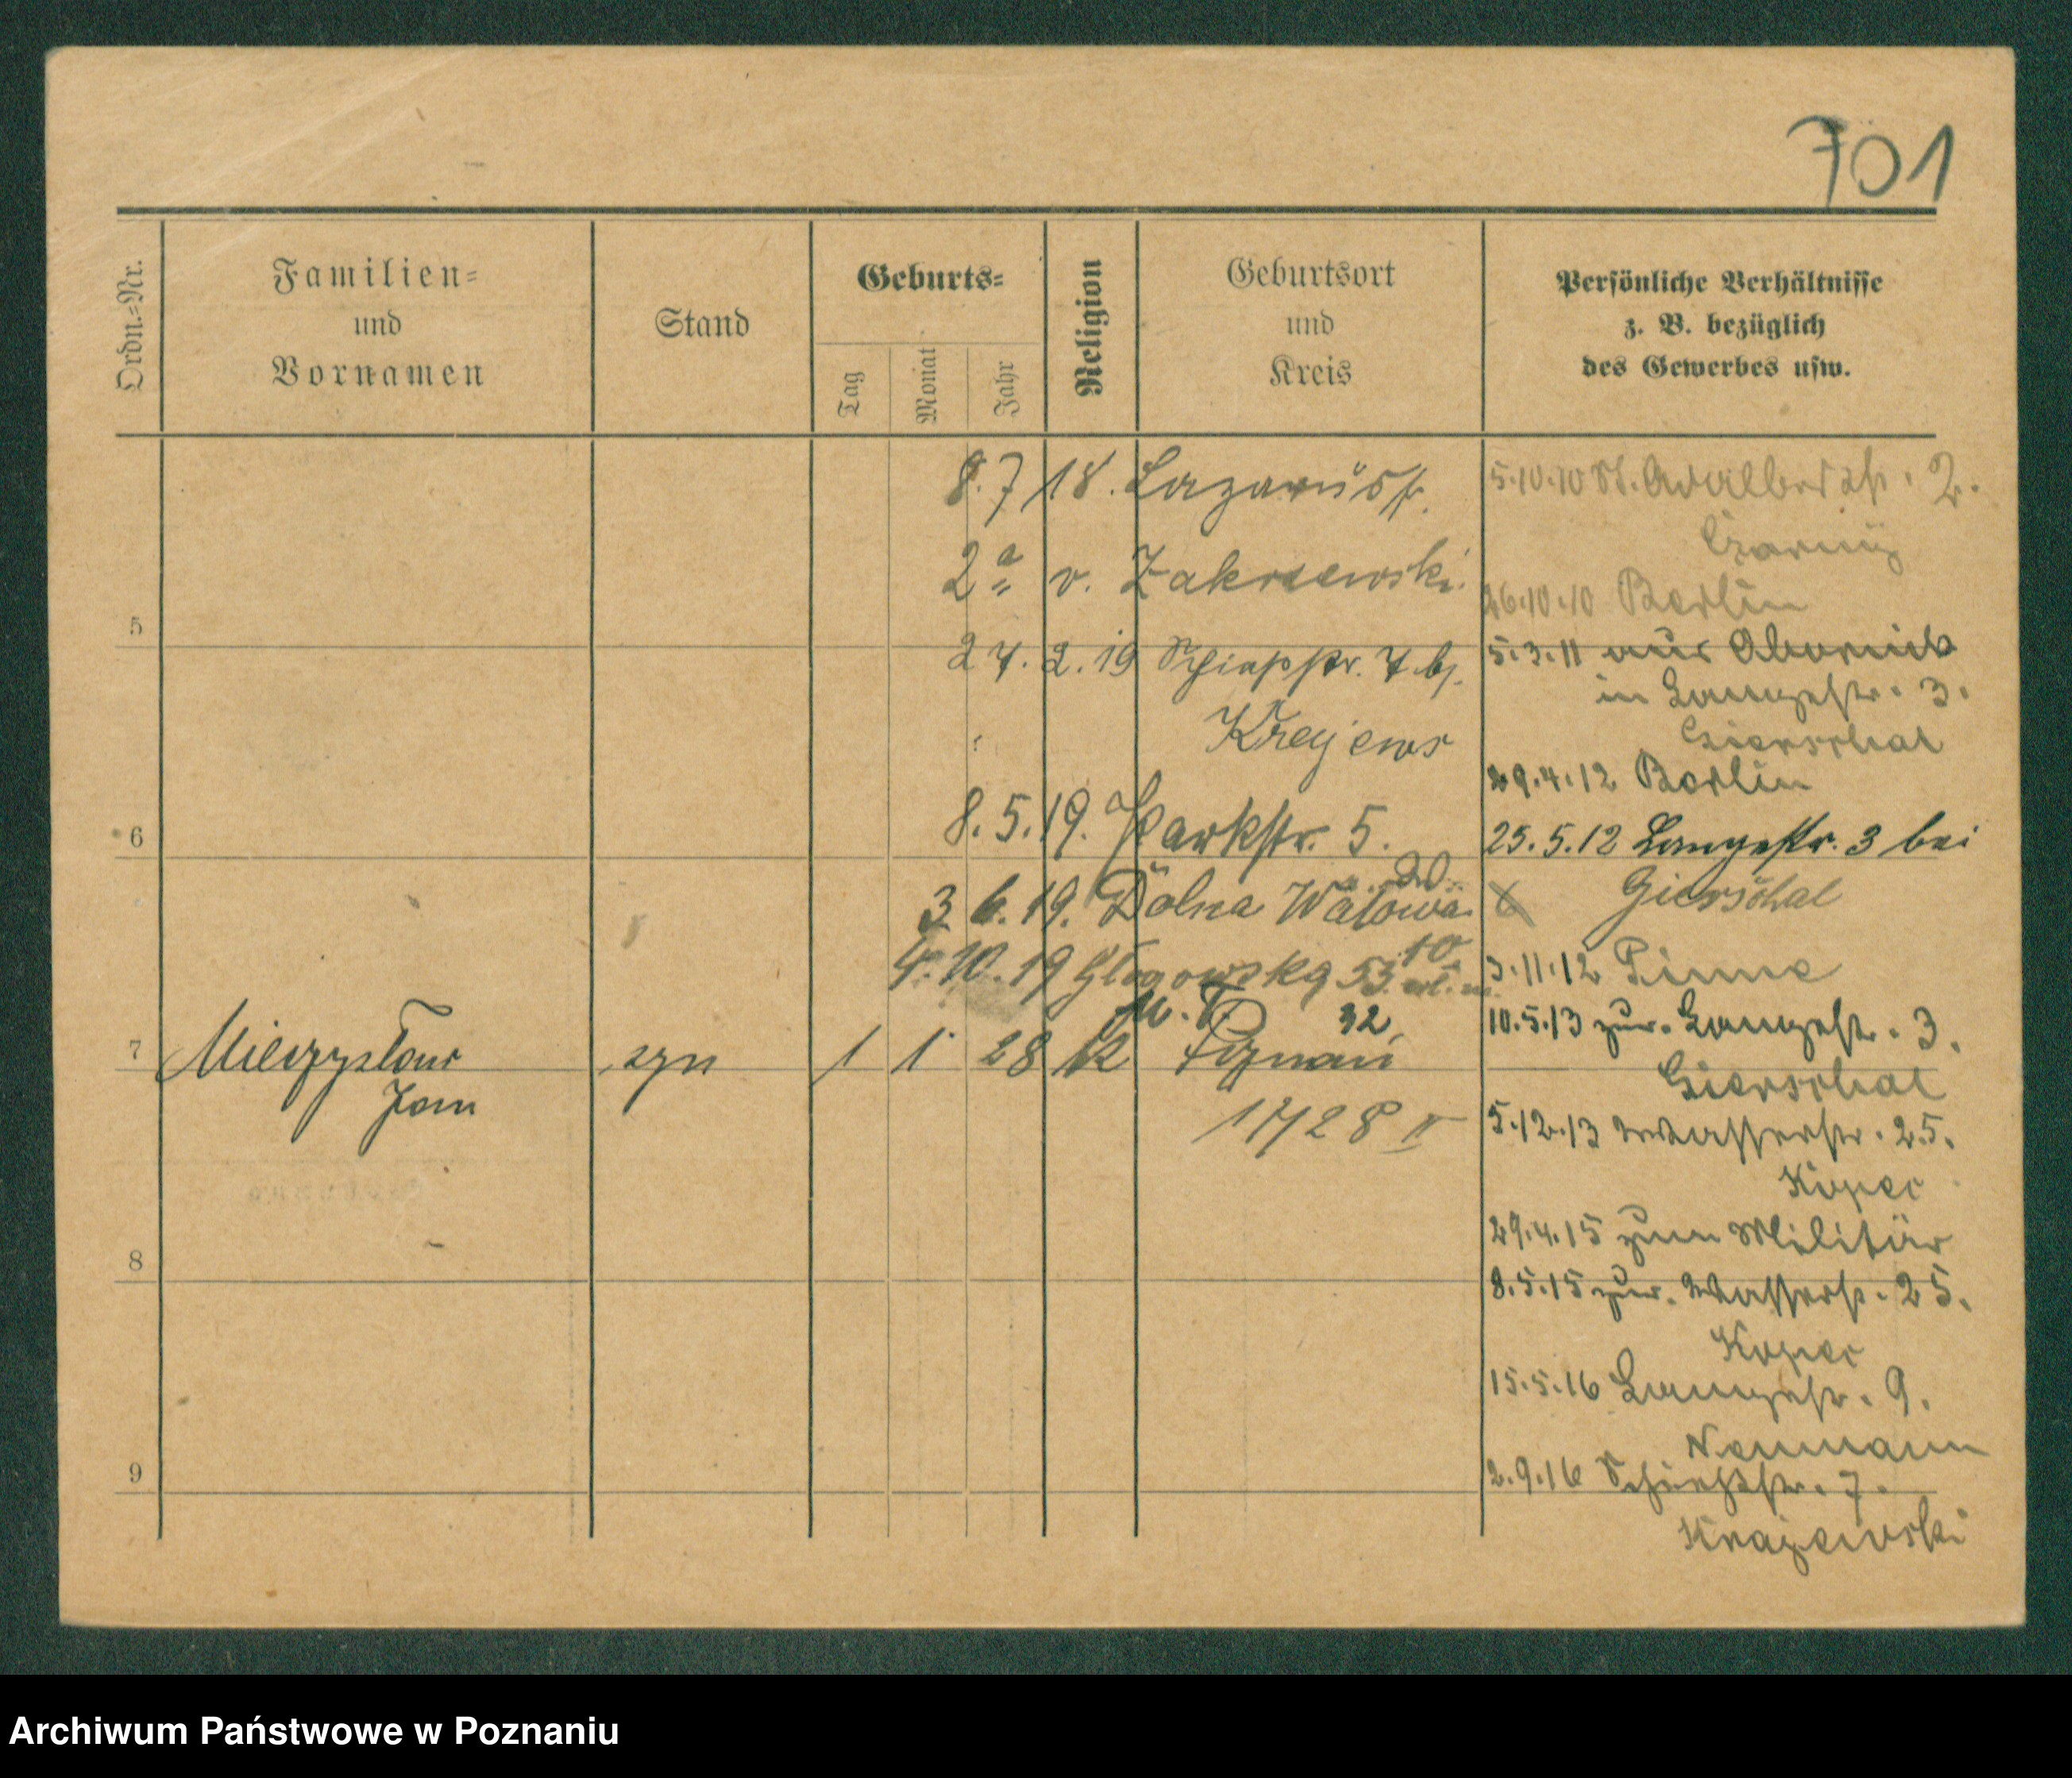 701
Ordn.=Nr.
Familien=
und
Vornamen
Stand
Geburts=
Tag
Monat
Jahr
Religion
Geburtsort
und
Kreis
Persönliche Verhältnisse
z. B. bezüglich
des Gewerbes usw.
8.7 18. Lazarusstr.
2a v. Zakrzewski.
5
27.2.19 Schiesstr. 7 bj.
Krajews
8.5.19. Parkstr. 5.
6
3 6.19. Dolna Wałowa 20
4.10.19 Głogowska 53.
10
32
7 Mieczysław syn 1 1 28 k Poznań
Jan
1728 II
8
9
5.10.10 St. Adalbertstr. 2.
26.10.10 Berlin
5.3.11 aus Obornik
in Langestr. 3.
Gierschal
29.4.12 Berlin
25.5.12 Langestr. 3 bei
Gierschal
3.11.12 Pinne
10.5.13 zur. Langestr. 3.
Gierschal
5.12.13 Wasserstr. 25.
Kopec
29.4.15 zum Militär
8.5.15 zur. Wasserstr. 25.
Kopec
15.5.16 Langestr. 9.
Neumann
2.9.16 Schießstr. 7.
Krajewski
Archiwum Państwowe w Poznaniu